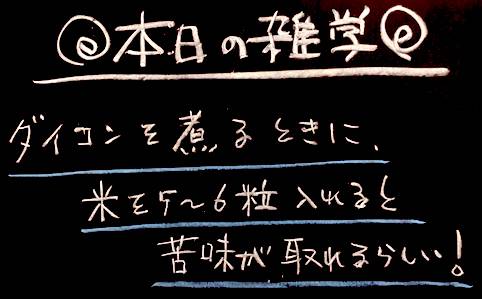 本日の雑学
ダイコンを煮るときに、
米を5〜6粒入れると
苦味が取れるらしい!